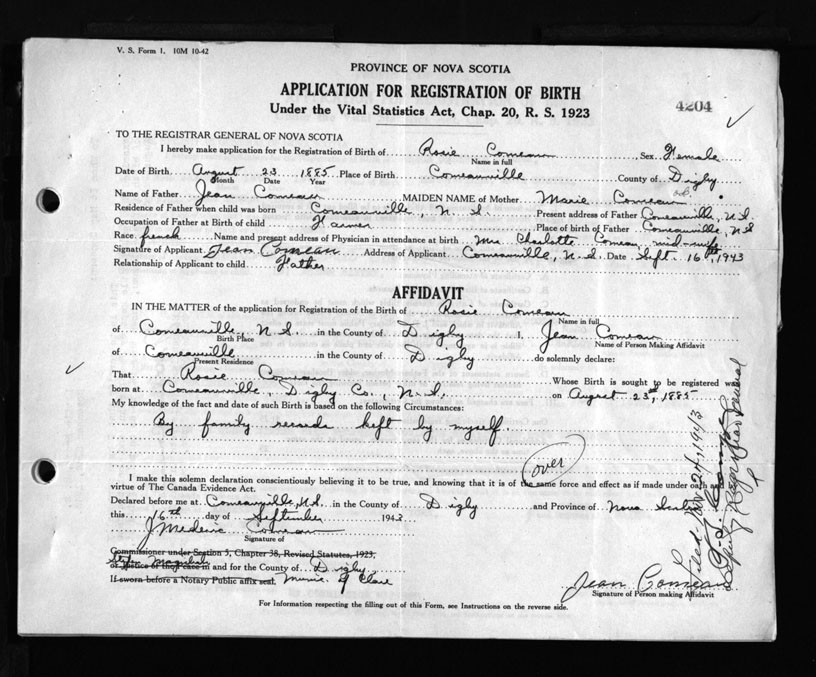 V. S. Form 1. 10M 10-42
PROVINCE OF NOVA SCOTIA
APPLICATION FOR REGISTRATION OF BIRTH
Under the Vital Statistics Act, Chap. 20, R. S. 1923
4204
TO THE REGISTRAR GENERAL OF NOVA SCOTIA
I hereby make application for the Registration of Birth of Rosie Comeau Sex Female
Name in full
Date of Birth August 23 1885 Place of Birth Comeauville County of Digby
Month Date Year
Name of Father Jean Comeau MAIDEN NAME of Mother Marie Comeau
Residence of Father when child was born Comeauville, N.S. Present address of Father Comeauville, N.S.
Occupation of Father at Birth of child Farmer Place of birth of Father Comeauville, N.S
Race french Name and present address of Physician in attendance at birth Mrs. Charlotte Comeau, mid-wife
Signature of Applicant Jean Comeau Address of Applicant Comeauville, N.S. Date Sept. 16th, 1943
Relationship of Applicant to child Father
AFFIDAVIT
IN THE MATTER of the application for Registration of the Birth of Rosie Comeau
Name in full
of Comeauville, N.S. in the County of Digby I, Jean Comeau
Birth Place Name of Person Making Affidavit
of Comeauville in the County of Digby do solemnly declare:
Present Residence
That Rosie Comeau Whose Birth is sought to be registered was
born at Comeauville, Digby Co., N.S. on August 23rd, 1885
My knowledge of the fact and date of such Birth is based on the following Circumstances:
By family records kept by myself.
over
I make this solemn declaration conscientiously believing it to be true, and knowing that it is of the same force and effect as if made under oath and
virtue of The Canada Evidence Act.
Declared before me at Comeauville, N.S. in the County of Digby and Province of Nova Scotia
this 16th day of September 1943
J Mederic Comeau
Signature of
Commissioner under Section 3, Chapter 38, Revised Statutes, 1923,
or Justice of the Peace in and for the County of Digby
If sworn before a Notary Public affix seal. Munic. of Clare
Jean Comeau
Signature of Person making Affidavit
For Information respecting the filling out of this Form, see Instructions on the reverse side.
Filed Nov 24, 1943
Deputy Registrar General